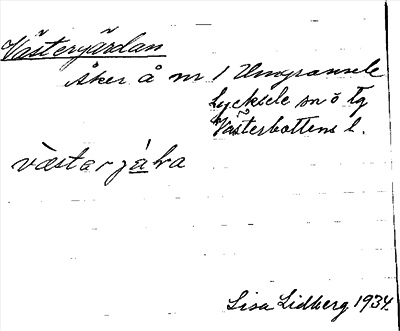 Västergärdan
Åker å nr 1 Umgransele
Lycksele sn o tg
Västerbottens l.
västar
Lisa Lidberg 1934.